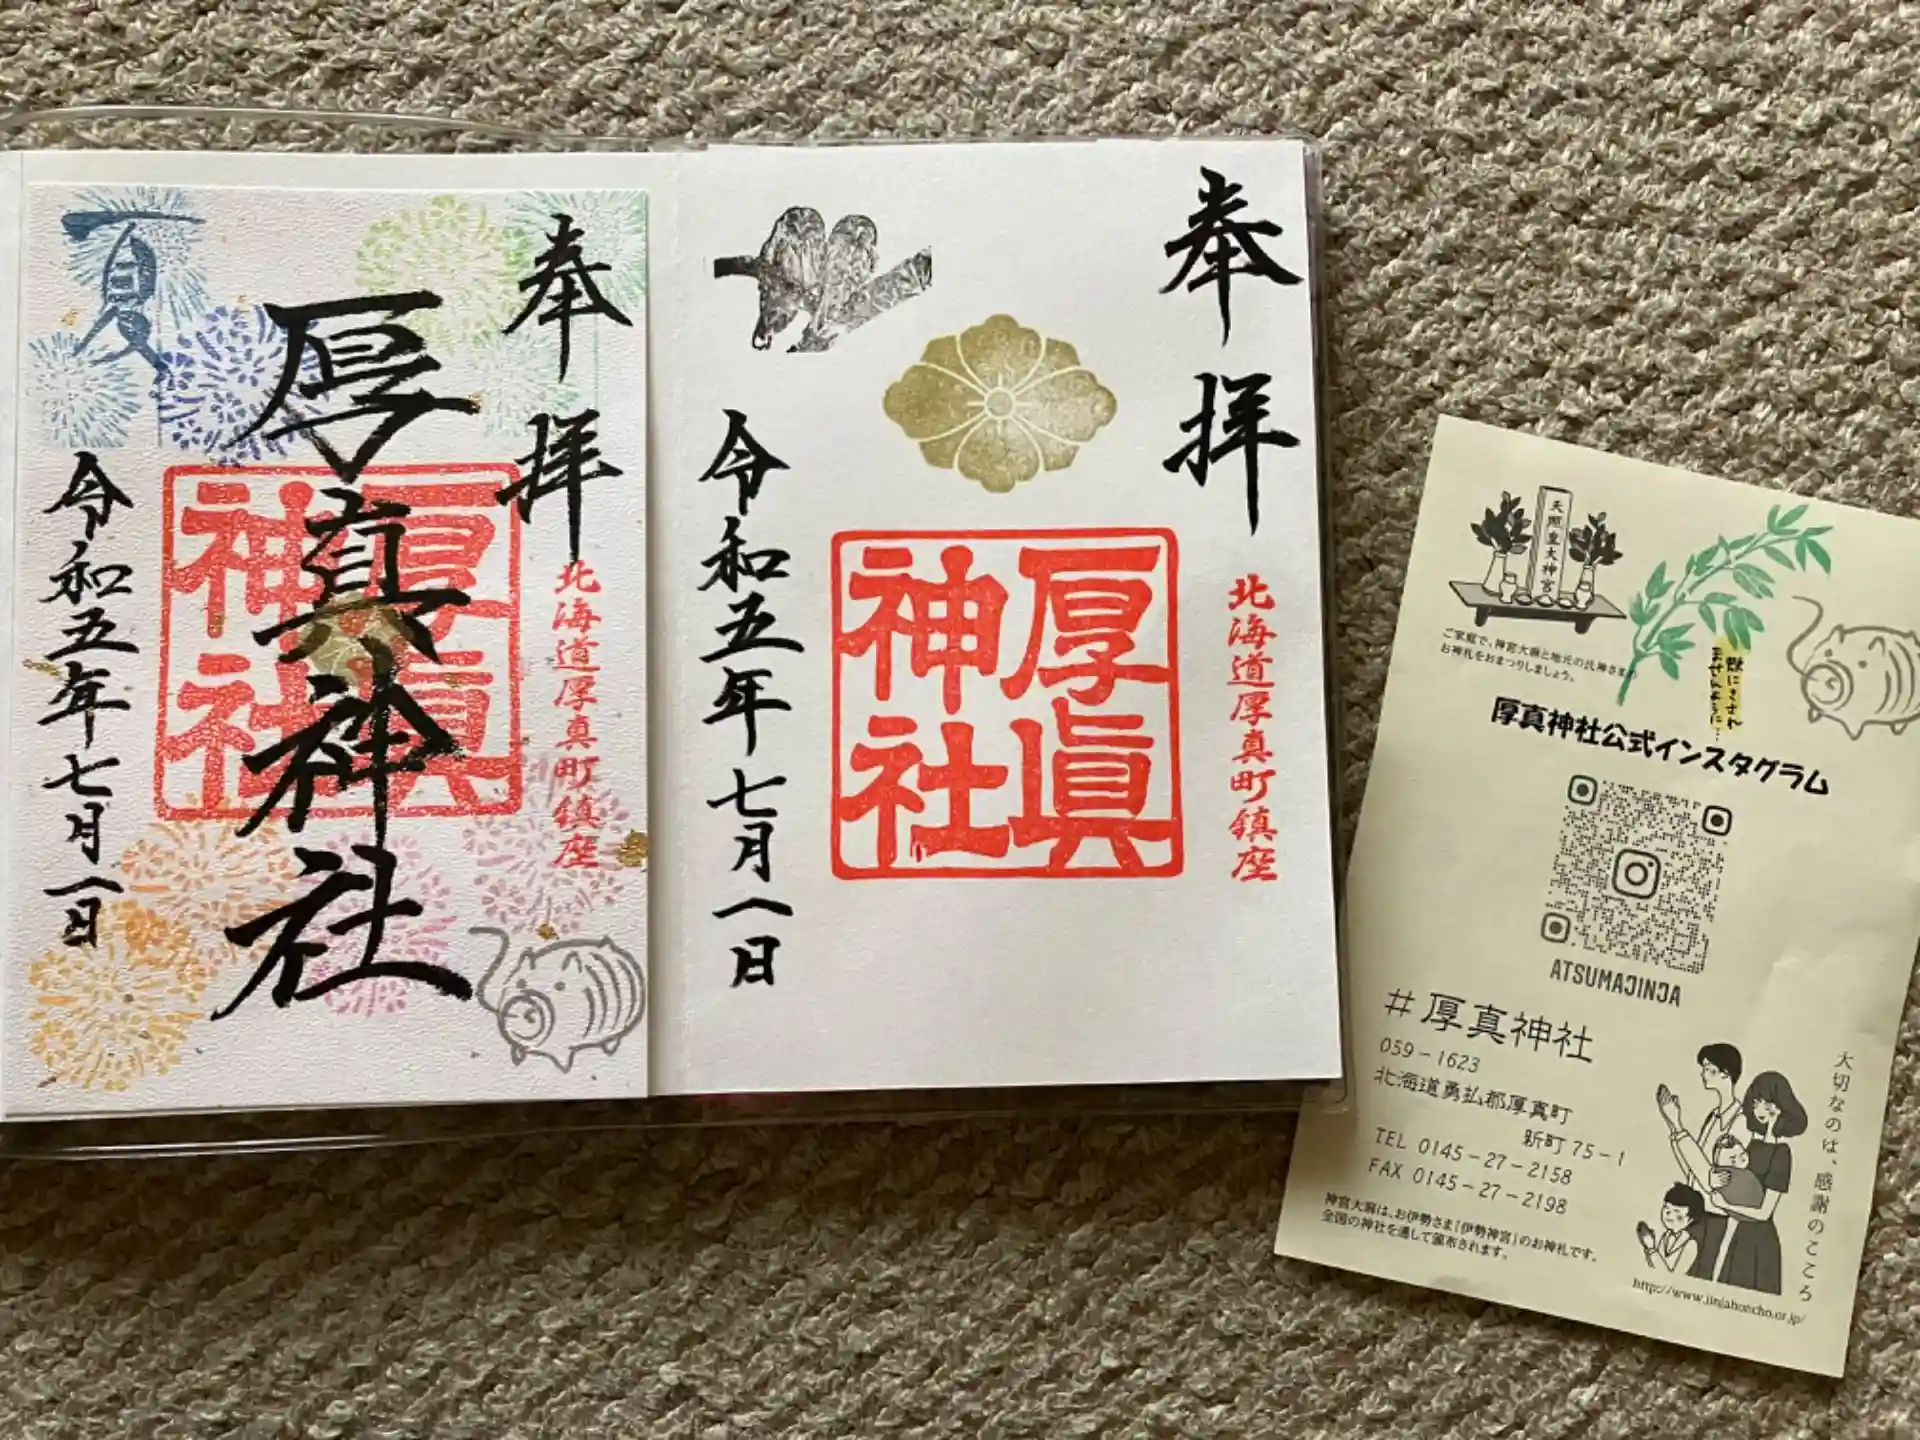 奉拝
北海道厚真町鎮座
厚真神社
厚眞神社
夏
令和五年七月一日
奉拝
北海道厚真町鎮座
厚眞神社
令和五年七月一日
天照皇大神宮
ご家庭で、神宮大麻と地元の氏神さまの
お神札をおまつりしましょう。
豚にされ
ませんように…
厚真神社公式インスタグラム
ATSUMAJINJA
#厚真神社
059-1623
北海道勇払郡厚真町
新町75-1
TEL 0145-27-2158
FAX 0145-27-2198
神宮大麻は、お伊勢さま「伊勢神宮」のお神札です。
全国の神社を通して頒布されます。
大切なのは、感謝のこころ
http://www.jinjahoncho.or.jp/